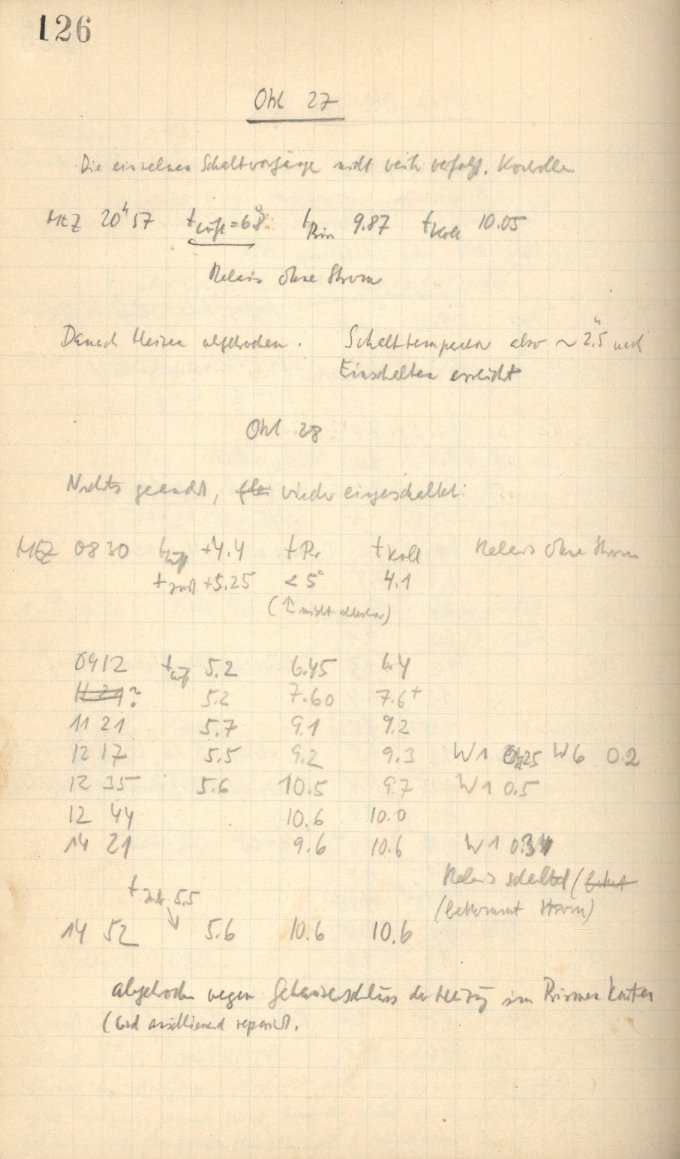 126
Okt 27
Die einzelnen Schaltvorgänge nicht weiter verfolgt. Kontrollen
MEZ 20h57 tLuft=6.8 tPrin 9.87 tKoll 10.05
Relais ohne Strom
Danach Heizen abgebrochen. Schalttemperatur also ~ 2h.5 nach
Einschalten erreicht
Okt 28
Nichts geändert, wieder eingeschaltet:
MEZ 0830 tLuft +4.4 tPr tKoll Relais ohne Strom
+5.25 < 5° 4.1
(↑ nicht ablesbar)
0912 tLuft 5.2 6.45 6.4
11 21? 5.2 7.60 7.6+
11 21 5.7 9.1 9.2
12 17 5.5 9.2 9.3 W1 W6 0.2
12 35 5.6 10.5 9.7 W1 0.5
12 44 10.6 10.0
14 21 9.6 10.6 W1
Relais schaltet (bekommt
(bekommt Strom)
5.5
14 52 5.6 10.6 10.6
abgebrochen wegen Gehäuseschluss der Heizung im Prismen Kasten
(wird anschliessend repariert.